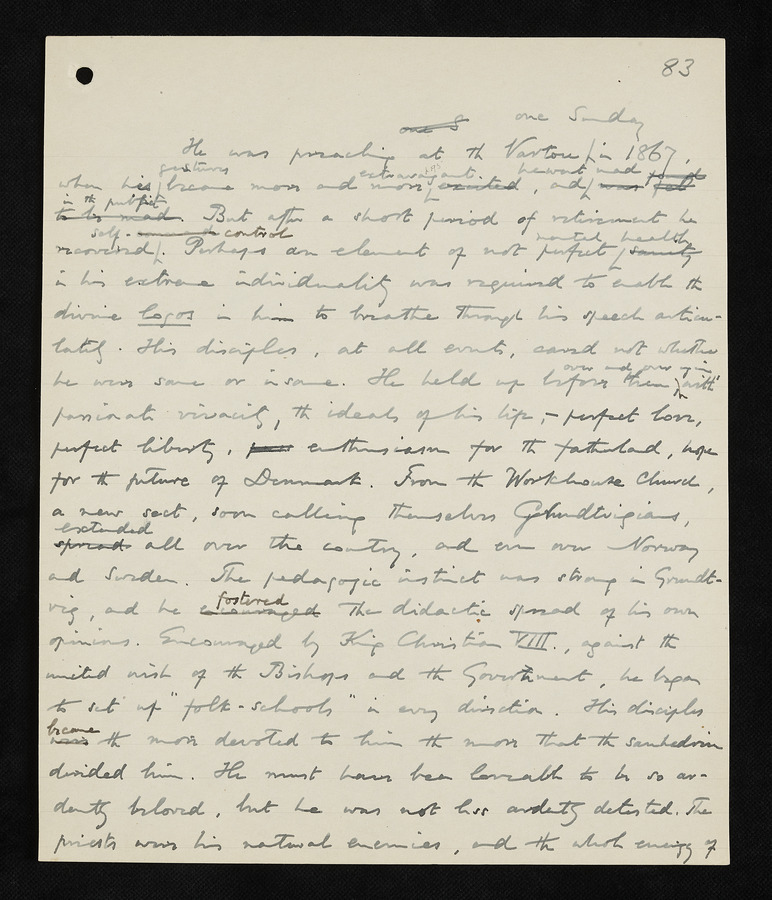 83
one S one Sunday
He was preaching at th Vartou in 1867,
gestures extravagant. he went mad
when his became more and more excited, and was felt
in th pulpit
to be mad. But after a short period of retirement he
self-control mental health
recovered. Perhaps an element of not perfect sanity
in his extreme individuality was required to enable th
divine logos in him to breathe through his speech articu-
lately. His disciples, at all events, cared not whether
over and over again
he were sane or insane. He held up before them, with
passionate vivacity, th ideals of his life, – perfect love,
perfect liberty, enthusiasm for th fatherland, hope
for th future of Denmark. From th Workhouse Church,
a new sect, soon calling themselves Grundtvigians,
extended
spreads all over the country, and even over Norway
and Sweden. The pedagogic instinct was strong in Grundt-
fostered
vig, and he encouraged the didactic spread of his own
opinions. Encouraged by King Christian VIII., against th
united wish of th Bishops and th Government, he began
to set up "folk-schools" in every direction. His disciples
became
were th more devoted to him th more that th sanhedrim
derided him. He must have been loveable to be so ar-
dently beloved, but he was not less ardently detested. The
priests were his natural enemies, and th whole energy of